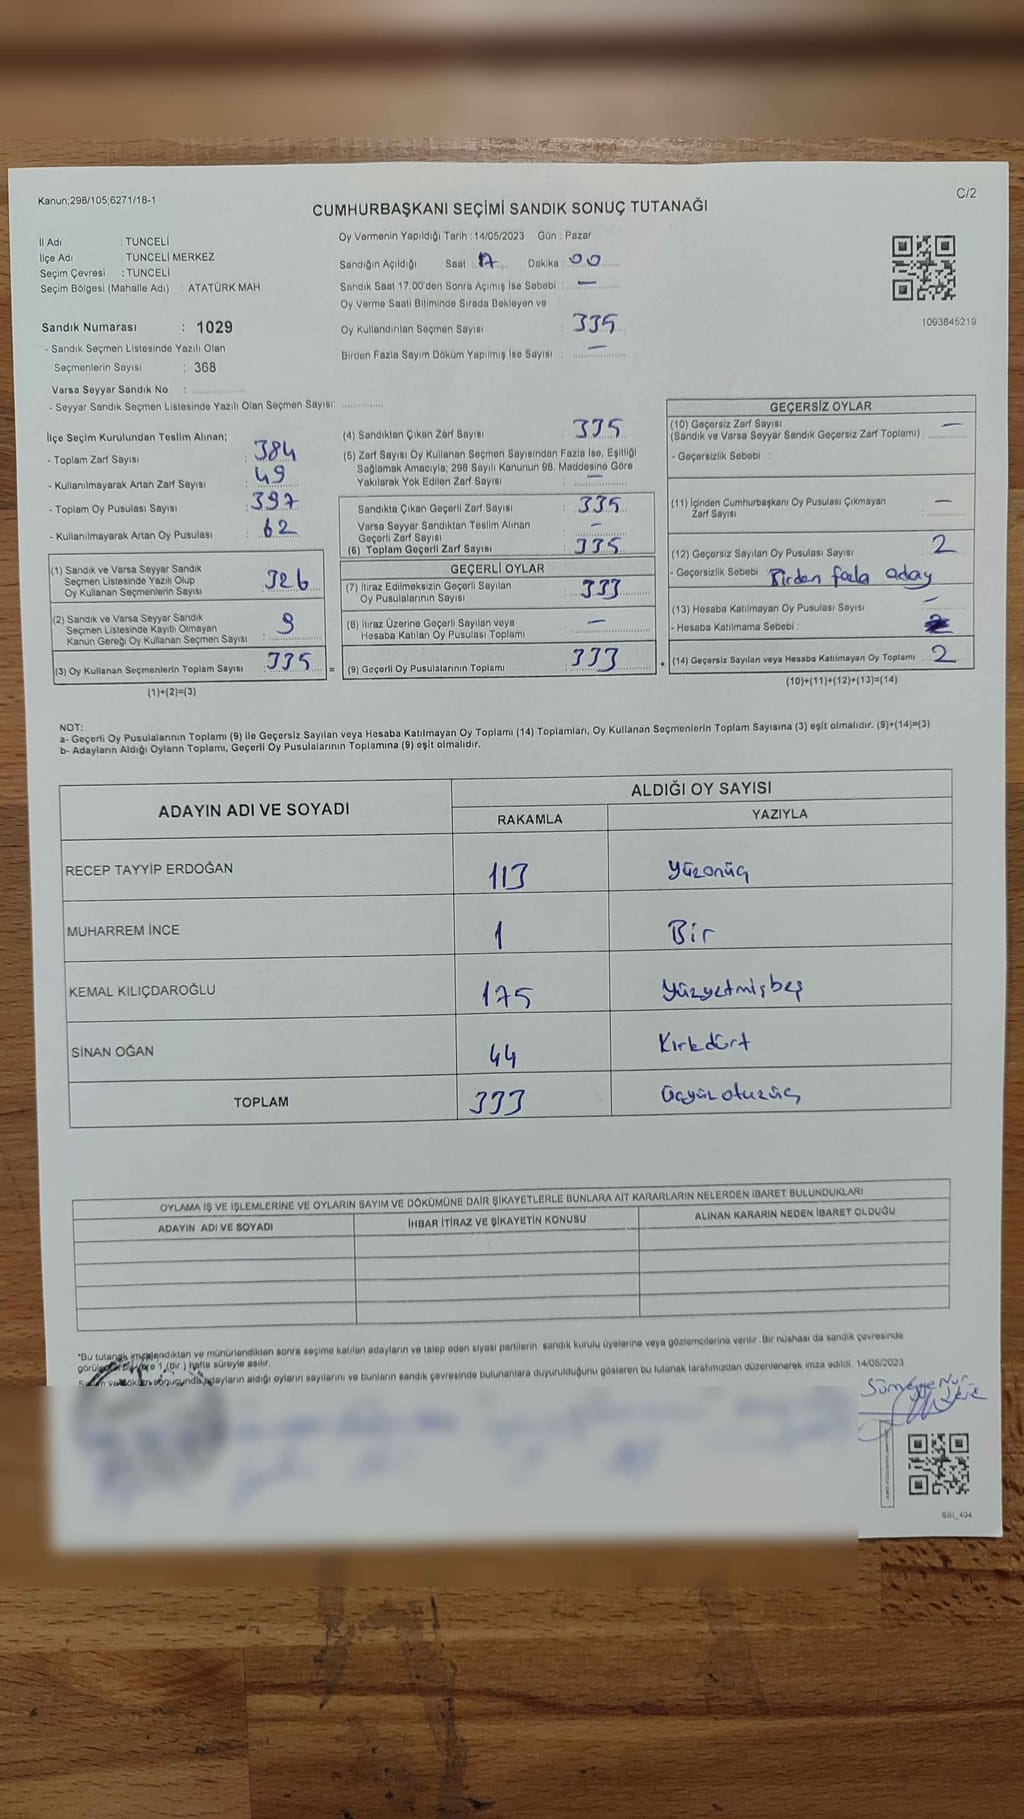 Kanun;298/105;6271/18-1
C/2
CUMHURBAŞKANI SEÇİMİ SANDIK SONUÇ TUTANAĞI
İl Adı : TUNCELİ
İlçe Adı : TUNCELİ MERKEZ
Seçim Çevresi : TUNCELİ
Seçim Bölgesi (Mahalle Adı) : ATATÜRK MAH.
Sandık Numarası : 1029
- Sandık Seçmen Listesinde Yazılı Olan
Seçmenlerin Sayısı : 368
Varsa Seyyar Sandık No : ..............
- Seyyar Sandık Seçmen Listesinde Yazılı Olan Seçmen Sayısı: ............
Oy Vermenin Yapıldığı Tarih : 14/05/2023 Gün : Pazar
Sandığın Açıldığı Saat : 17 Dakika : 00
Sandık Saat 17.00'den Sonra Açmış İse Sebebi : —
Oy Verme Saati Bitiminde Sırada Bekleyen ve
Oy Kullandırılan Seçmen Sayısı : 335
Birden Fazla Sayım Döküm Yapılmış İse Sayısı : —
1093845219
İlçe Seçim Kurulundan Teslim Alınan;
- Toplam Zarf Sayısı : 384
- Kullanılmayarak Artan Zarf Sayısı : 49
- Toplam Oy Pusulası Sayısı : 397
- Kullanılmayarak Artan Oy Pusulası : 62
(1) Sandık ve Varsa Seyyar Sandık
Seçmen Listesinde Yazılı Olup
Oy Kullanan Seçmenlerin Sayısı : 326
(2) Sandık ve Varsa Seyyar Sandık
Seçmen Listesinde Kayıtlı Olmayan
Kanun Gereği Oy Kullanan Seçmen Sayısı : 9
(3) Oy Kullanan Seçmenlerin Toplam Sayısı : 335
(1)+(2)=(3)
(4) Sandıktan Çıkan Zarf Sayısı : 335
(5) Zarf Sayısı Oy Kullanan Seçmen Sayısından Fazla İse, Eşitliği
Sağlamak Amacıyla; 298 Sayılı Kanunun 98. Maddesine Göre
Yakılarak Yok Edilen Zarf Sayısı : —
Sandıkta Çıkan Geçerli Zarf Sayısı : 335
Varsa Seyyar Sandıktan Teslim Alınan
Geçerli Zarf Sayısı : —
(6) Toplam Geçerli Zarf Sayısı : 335
GEÇERLİ OYLAR
(7) İtiraz Edilmeksizin Geçerli Sayılan
Oy Pusulalarının Sayısı : 333
(8) İtiraz Üzerine Geçerli Sayılan veya
Hesaba Katılan Oy Pusulası Toplamı : —
= (9) Geçerli Oy Pusulalarının Toplamı : 333 +
GEÇERSİZ OYLAR
(10) Geçersiz Zarf Sayısı —
(Sandık ve Varsa Seyyar Sandık Geçersiz Zarf Toplamı) :
- Geçersizlik Sebebi :
(11) İçinden Cumhurbaşkanı Oy Pusulası Çıkmayan —
Zarf Sayısı :
(12) Geçersiz Sayılan Oy Pusulası Sayısı : 2
- Geçersizlik Sebebi : Birden fazla aday
(13) Hesaba Katılmayan Oy Pusulası Sayısı : —
- Hesaba Katılmama Sebebi :
(14) Geçersiz Sayılan veya Hesaba Katılmayan Oy Toplamı : 2
(10)+(11)+(12)+(13)=(14)
NOT:
a- Geçerli Oy Pusulalarının Toplamı (9) ile Geçersiz Sayılan veya Hesaba Katılmayan Oy Toplamı (14) Toplamları, Oy Kullanan Seçmenlerin Toplam Sayısına (3) eşit olmalıdır. (9)+(14)=(3)
b- Adayların Aldığı Oyların Toplamı, Geçerli Oy Pusulalarının Toplamına (9) eşit olmalıdır.
ADAYIN ADI VE SOYADI ALDIĞI OY SAYISI
RAKAMLA YAZIYLA
RECEP TAYYİP ERDOĞAN 113 Yüzonüç
MUHARREM İNCE 1 Bir
KEMAL KILIÇDAROĞLU 175 Yüzyetmişbeş
SİNAN OĞAN 44 Kırkdört
TOPLAM 333 Üçyüzotuzüç
OYLAMA İŞ VE İŞLEMLERİNE VE OYLARIN SAYIM VE DÖKÜMÜNE DAİR ŞİKAYETLERLE BUNLARA AİT KARARLARIN NELERDEN İBARET BULUNDUKLARI
ADAYIN ADI VE SOYADI İHBAR İTİRAZ VE ŞİKAYETİN KONUSU ALINAN KARARIN NEDEN İBARET OLDUĞU
*Bu tutanak imzalandıktan ve mühürlendikten sonra seçime katılan adayların ve talep eden siyasi partilerin sandık kurulu üyelerine veya gözlemcilerine verilir. Bir nüshası da sandık çevresinde
1 (bir) hafta süreyle asılır.
adayların aldığı oyların sayılarını ve bunların sandık çevresinde bulunanlara duyurulduğunu gösteren bu tutanak tarafımızdan düzenlenerek imza edildi. 14/05/2023
SSI_404